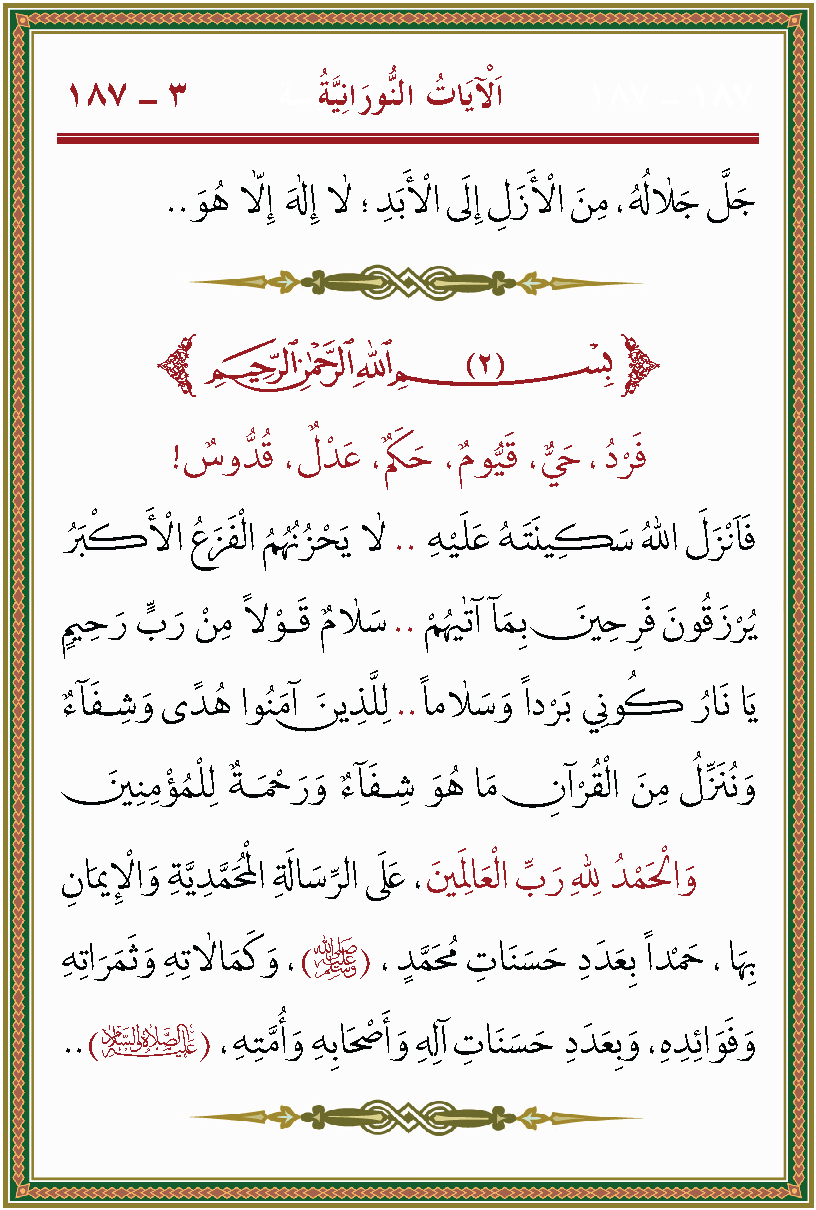 اَلْآيَاتُ النُّورَانِيَّةُ ٣ ـ ١٨٧
جَلَّ جَلَالُهُ، مِنَ الْأَزَلِ إِلَى الْأَبَدِ ؛ لَا إِلٰهَ إِلَّا هُوَ..
بِسْـــمِ اللهِ الرَّحْمٰنِ الرَّحِيمِ (٢)
فَرْدٌ، حَيٌّ، قَيُّومٌ، حَكَمٌ، عَدْلٌ، قُدُّوسٌ!
فَاَنْزَلَ اللهُ سَكِينَتَهُ عَلَيْهِ .. لَا يَحْزُنُهُمُ الْفَزَعُ الْأَكْبَرُ
يُرْزَقُونَ فَرِحِينَ بِمَآ آتٰيهُمْ .. سَلَامٌ قَوْلاً مِنْ رَبٍّ رَحِيمٍ
يَا نَارُ كُونِي بَرْداً وَسَلَاماً .. لِلَّذِينَ آمَنُوا هُدًى وَشِفَآءٌ
وَنُنَزِّلُ مِنَ الْقُرْآنِ مَا هُوَ شِفَآءٌ وَرَحْمَةٌ لِلْمُؤْمِنِينَ
وَالْحَمْدُ لِلهِ رَبِّ الْعَالَمِينَ، عَلَى الرِّسَالَةِ الْمُحَمَّدِيَّةِ وَالْإِيمَانِ
بِهَا ، حَمْداً بِعَدَدِ حَسَنَاتِ مُحَمَّدٍ ، (ﷺ) ، وَكَمَالَاتِهِ وَثَمَرَاتِهِ
وَفَوَائِدِهِ، وَبِعَدَدِ حَسَنَاتِ آلِهِ وَأَصْحَابِهِ وَأُمَّتِهِ ، (عليه الصلاة والسلام) ..